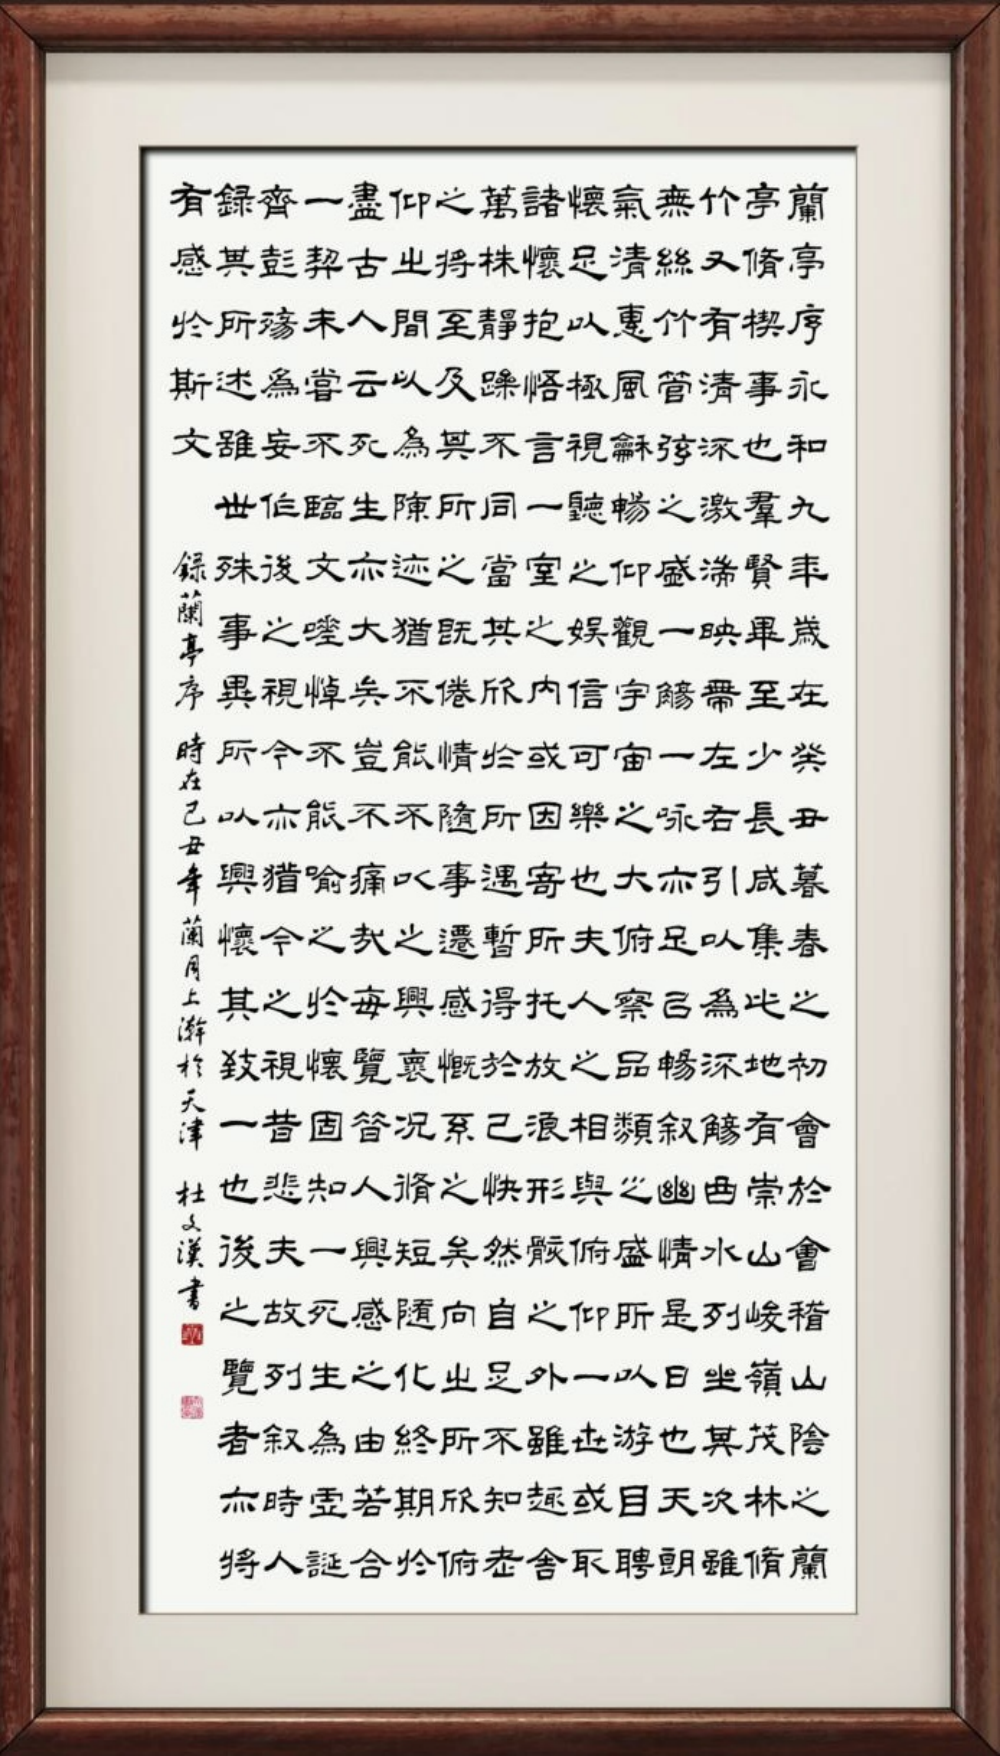 蘭亭序永和九年歲在癸丑暮春之初會於會稽山陰之蘭
亭脩楔事也羣賢畢至少長咸集此地有崇山峻嶺茂林脩
竹又有清深激湍映帶左右引以為深觴曲水列坐其次雖
無絲竹管弦之盛一觴一咏亦足己暢叙幽情是日也天朗
氣清惠風龢暢仰觀宇宙之大俯察品類之盛所以游目聘
懷足以極視聽之娛信可樂也夫人之相與俯仰一世或取
諸懷抱悟言一室之内或因寄所托放浪形骸之外雖趣舍
萬株靜躁不同當其欣於所遇暫得於己快然自足不知老
之將至及其所之既倦情隨事遷感慨系之矣向㞢所欣俯
仰㞢間以為陳迹猶不能不以之興褱况脩短隨化終期於
盡古人云死生亦大矣豈不痛哉每覽昝人興感之由若合
一契未嘗不臨文嗟悼不能喻之於懷固知一死生為虛誕
齊彭殤為妄作後之視今亦猶今之視昔悲夫故列叙時人
録其所述雖世殊事異所以興懷其致一也後之覽者亦將
有感於斯文
録蘭亭序 時在己丑年蘭月上澣於天津 杜文漢書